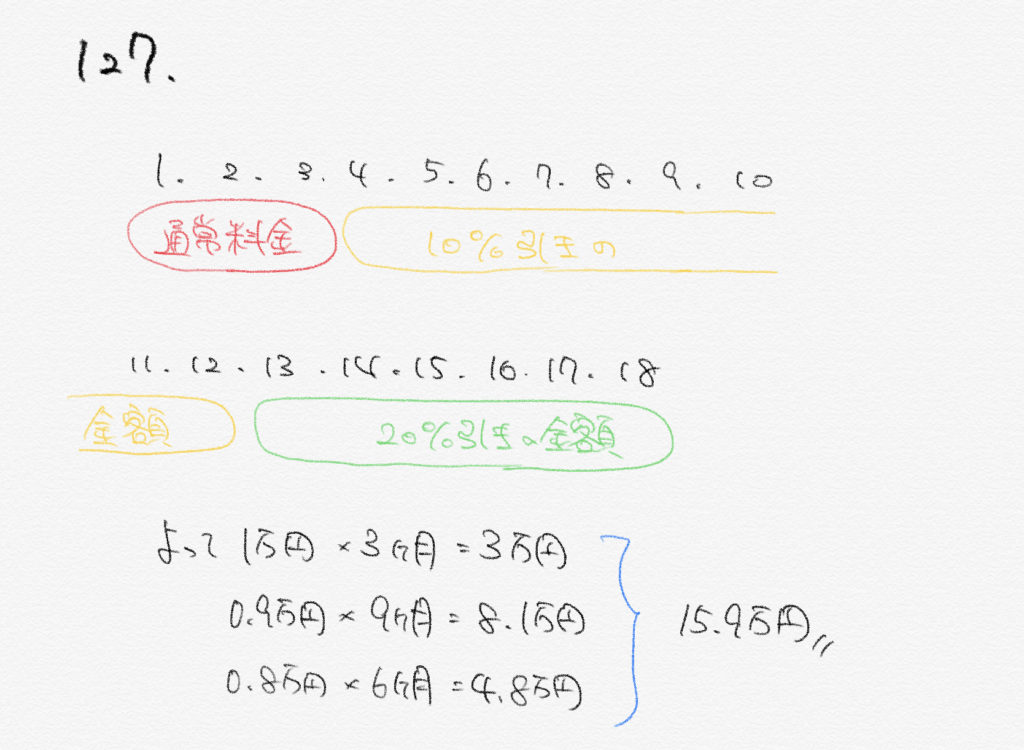 127.
1. 2. 3. 4. 5. 6. 7. 8. 9. 10
通常料金 10%引きの
11. 12. 13. 14. 15. 16. 17. 18
金額 20%引きの金額
よって 1万円×3ヶ月=3万円
0.9万円×9ヶ月=8.1万円
15.9万円
0.8万円×6ヶ月=4.8万円